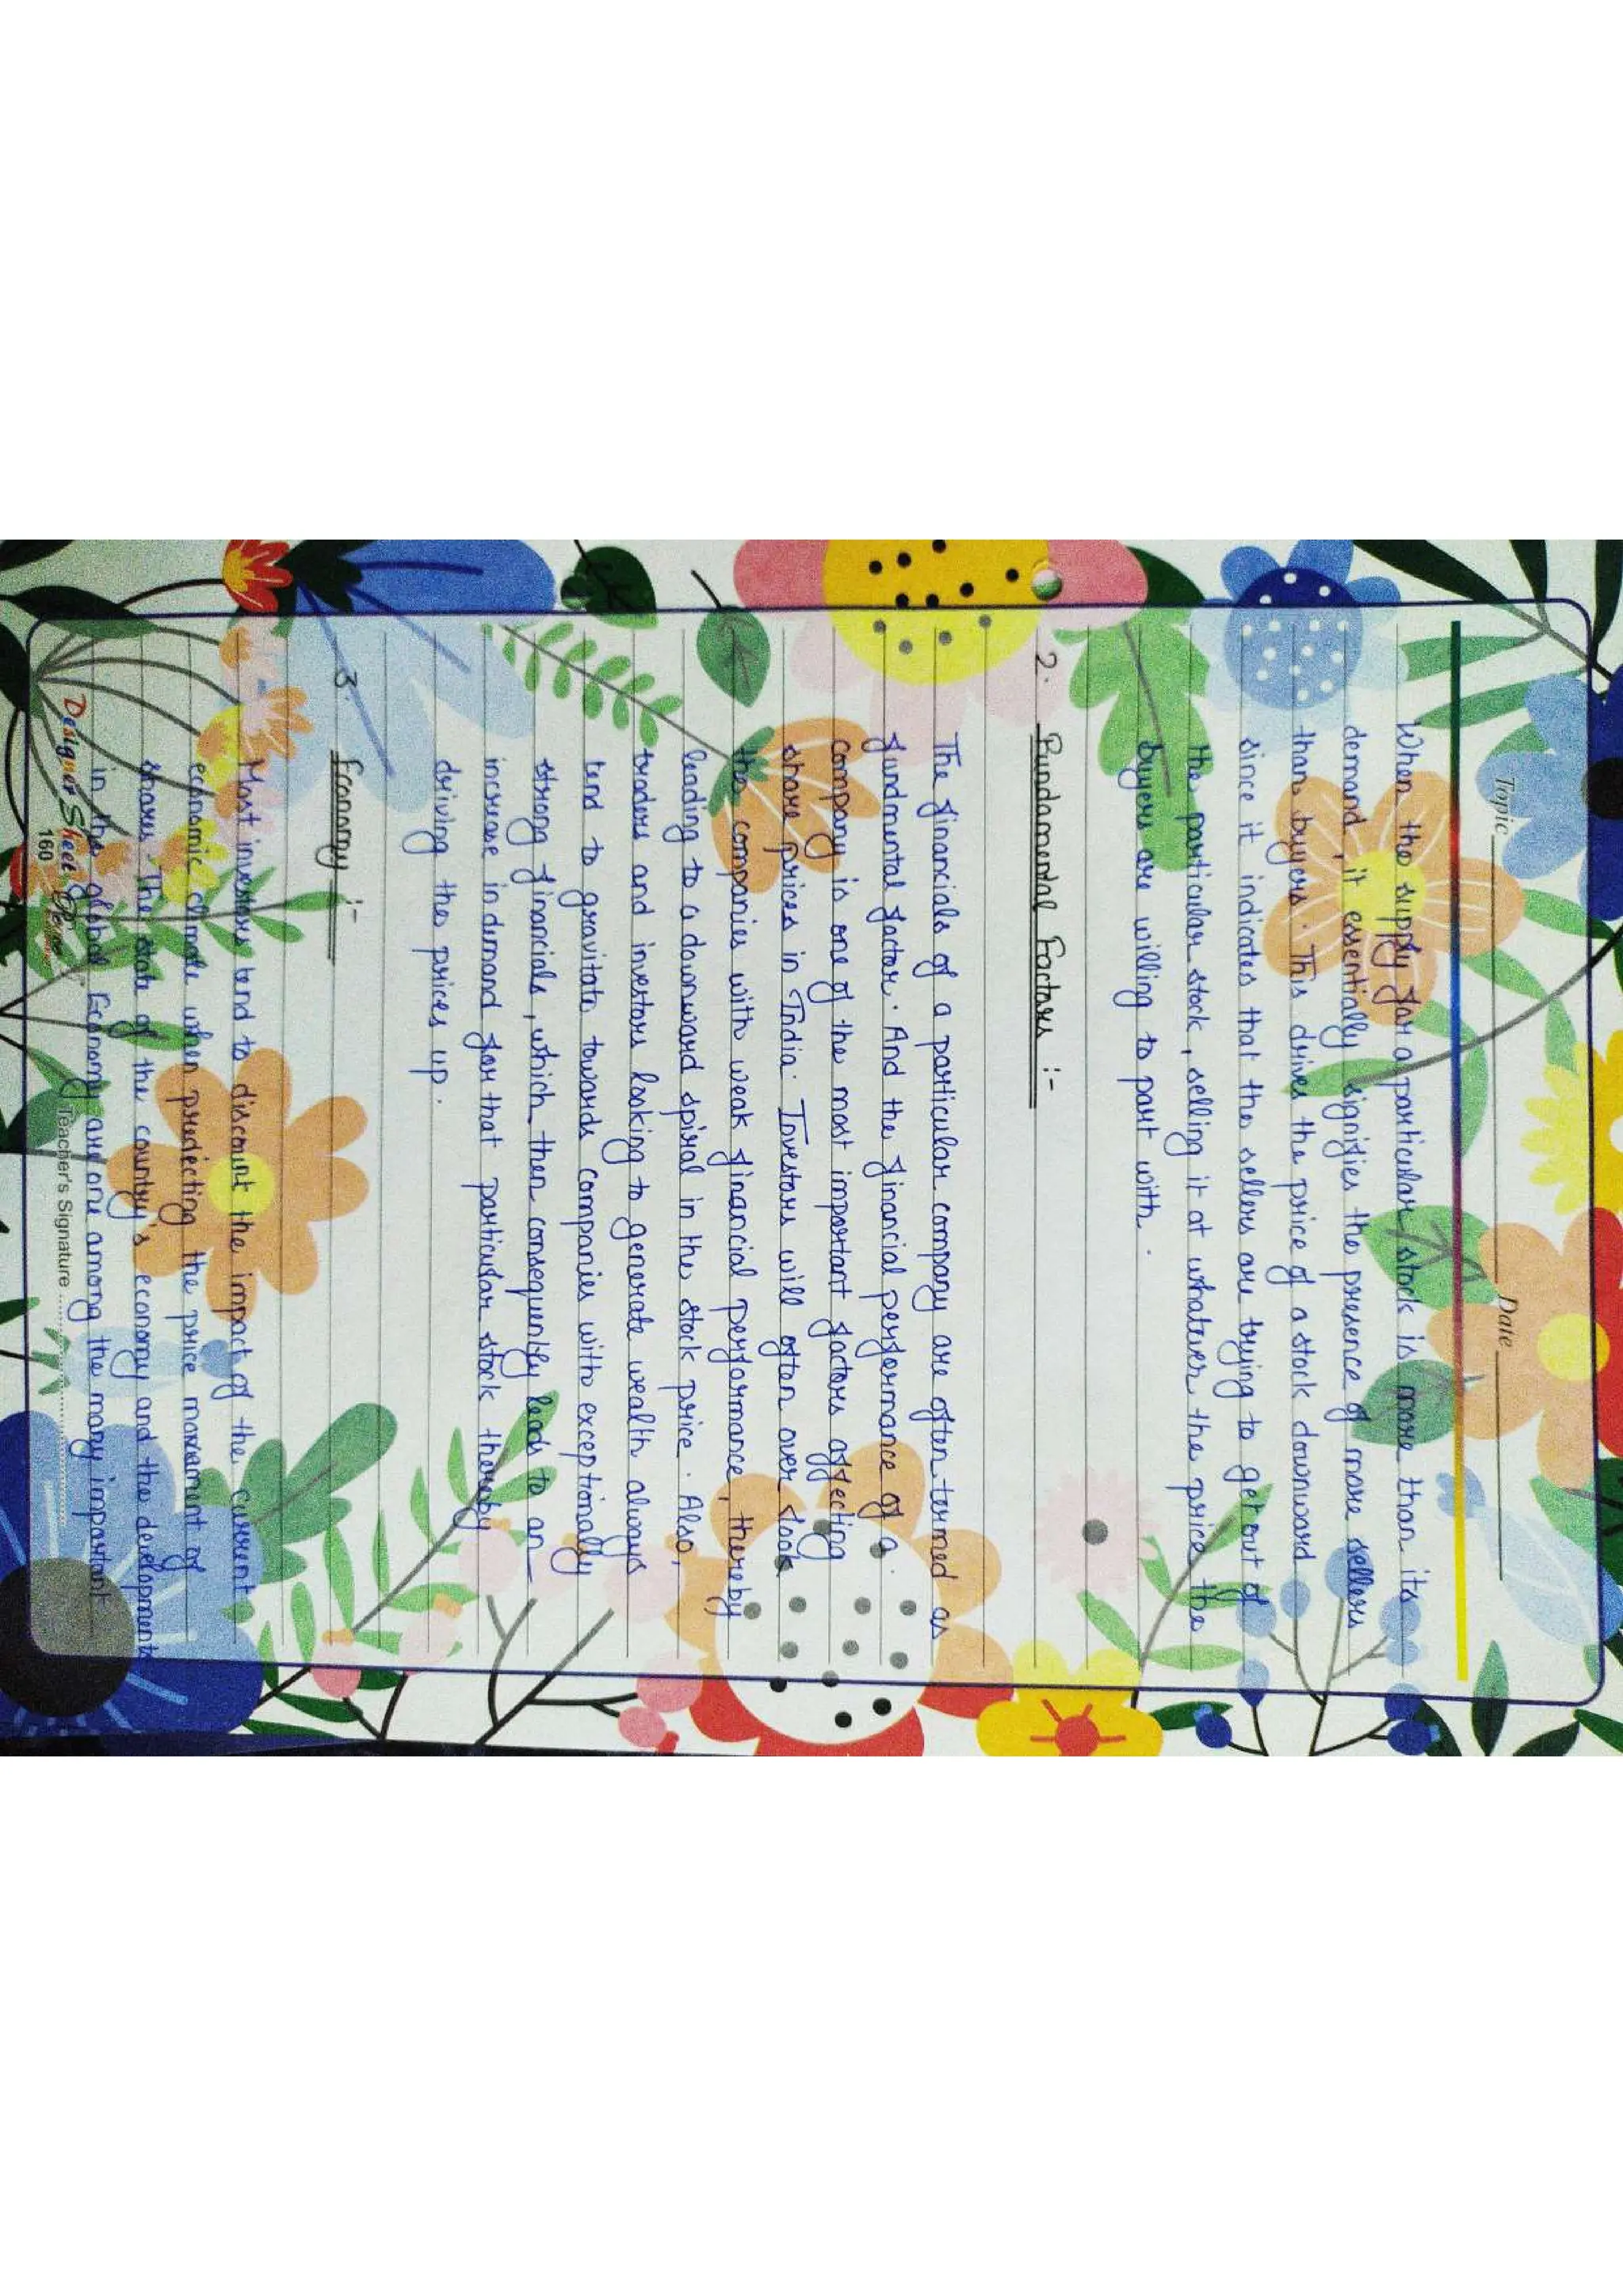 Topic Date
When the supply for a particular stock is more than its
demand, it essentially signifies the presence of more sellers
than buyers. This drives the price of a stock downward
since it indicates that the sellers are trying to get out of
the particular stock, selling it at whatever the price the
buyers are willing to part with.
2. Fundamental Factors :-
The financials of a particular company are often termed as
fundmental factor. And the financial performance of a
company is one of the most important factors affecting
share prices in India. Investors will often over look
the companies with weak financial performance, thereby
leading to a downward spiral in the stock price. Also,
traders and investors looking to generate wealth always
tend to gravitate towards companies with exceptionally
strong financials, which then consequently leads to an
increase in demand for that particular stock thereby
driving the prices up.
3. Economy :-
Most investors tend to discount the impact of the current
economic climate when predicting the price movement of
shares. The state of the country's economy and the development
in the global Economy are one among the many important
Designer Sheet
160
Teacher's Signature